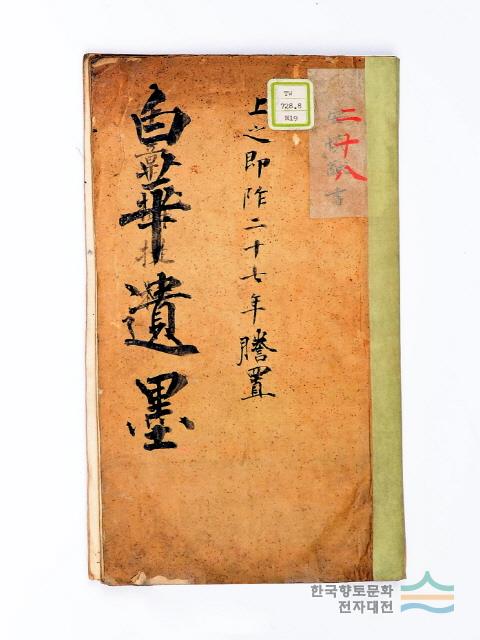 二十八
上之即阼二十七年謄置
白華遺墨
TW
728.8
N19
한국향토문화
전자대전